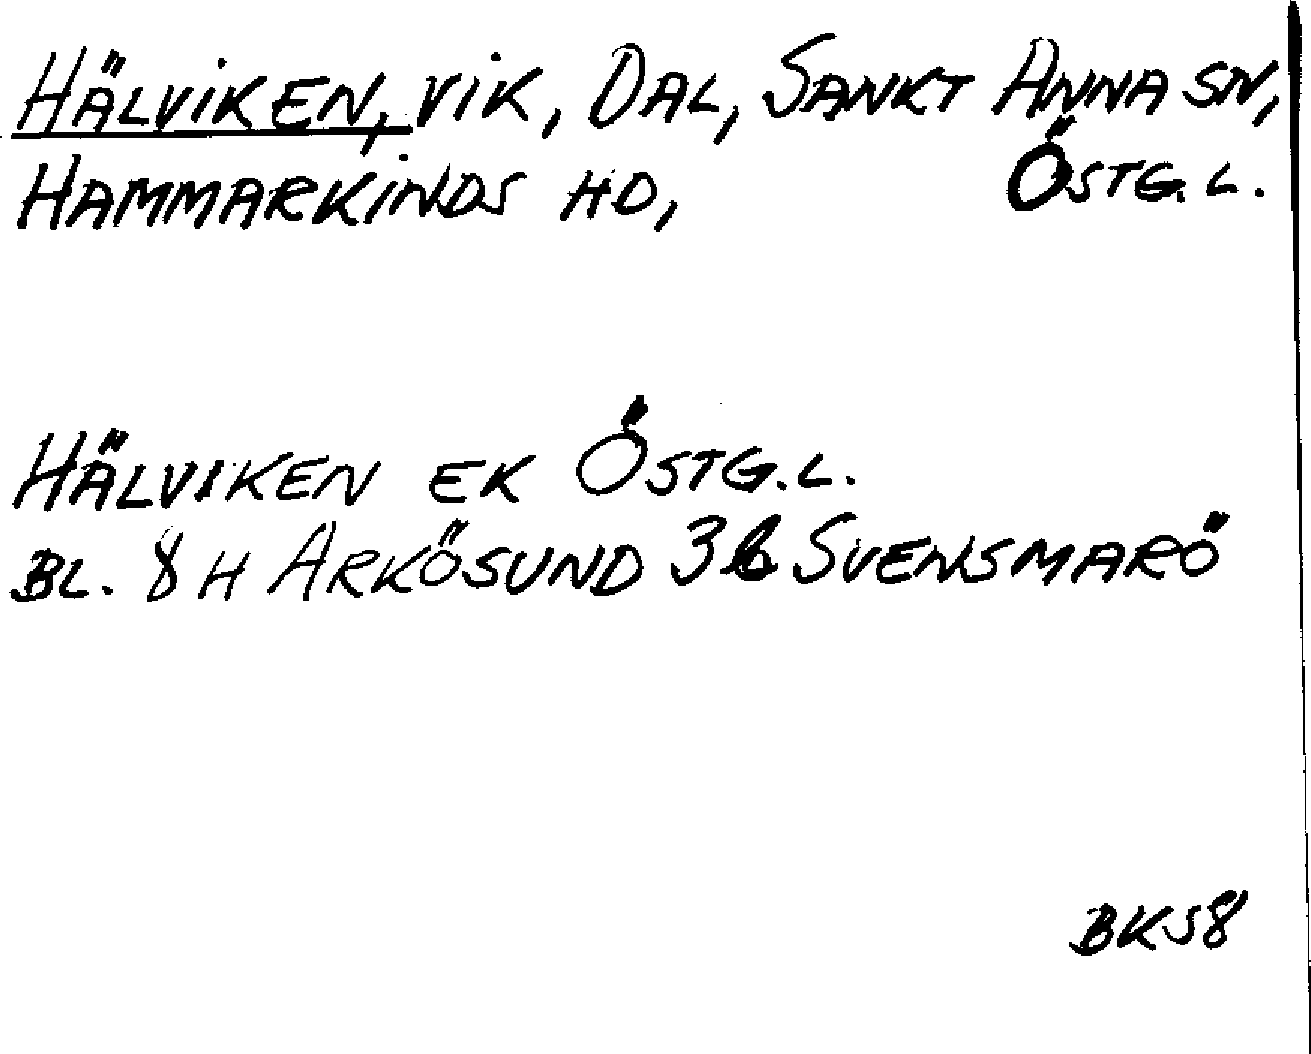 HÄLVIKEN, VIK, DAL, SANKT ANNA SN,
HAMMARKINDS HD, ÖSTG. L.
HÄLVIKEN EK ÖSTG. L.
BL. 8 H ARKÖSUND 3b SVENSMARÖ
BKS8